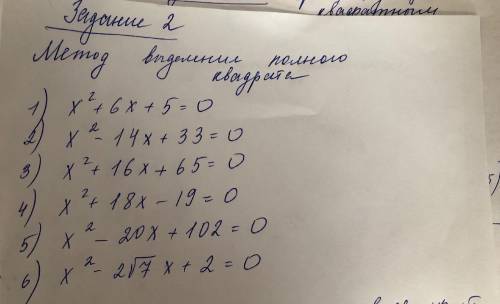 Задание 2
квадратным
Метод выделения полного
квадрата
1) x² + 6x + 5 = 0
2) x² - 14x + 33 = 0
3) x² + 16x + 65 = 0
4) x² + 18x - 19 = 0
5) x² - 20x + 102 = 0
6) x² - 2√7 x + 2 = 0
5)